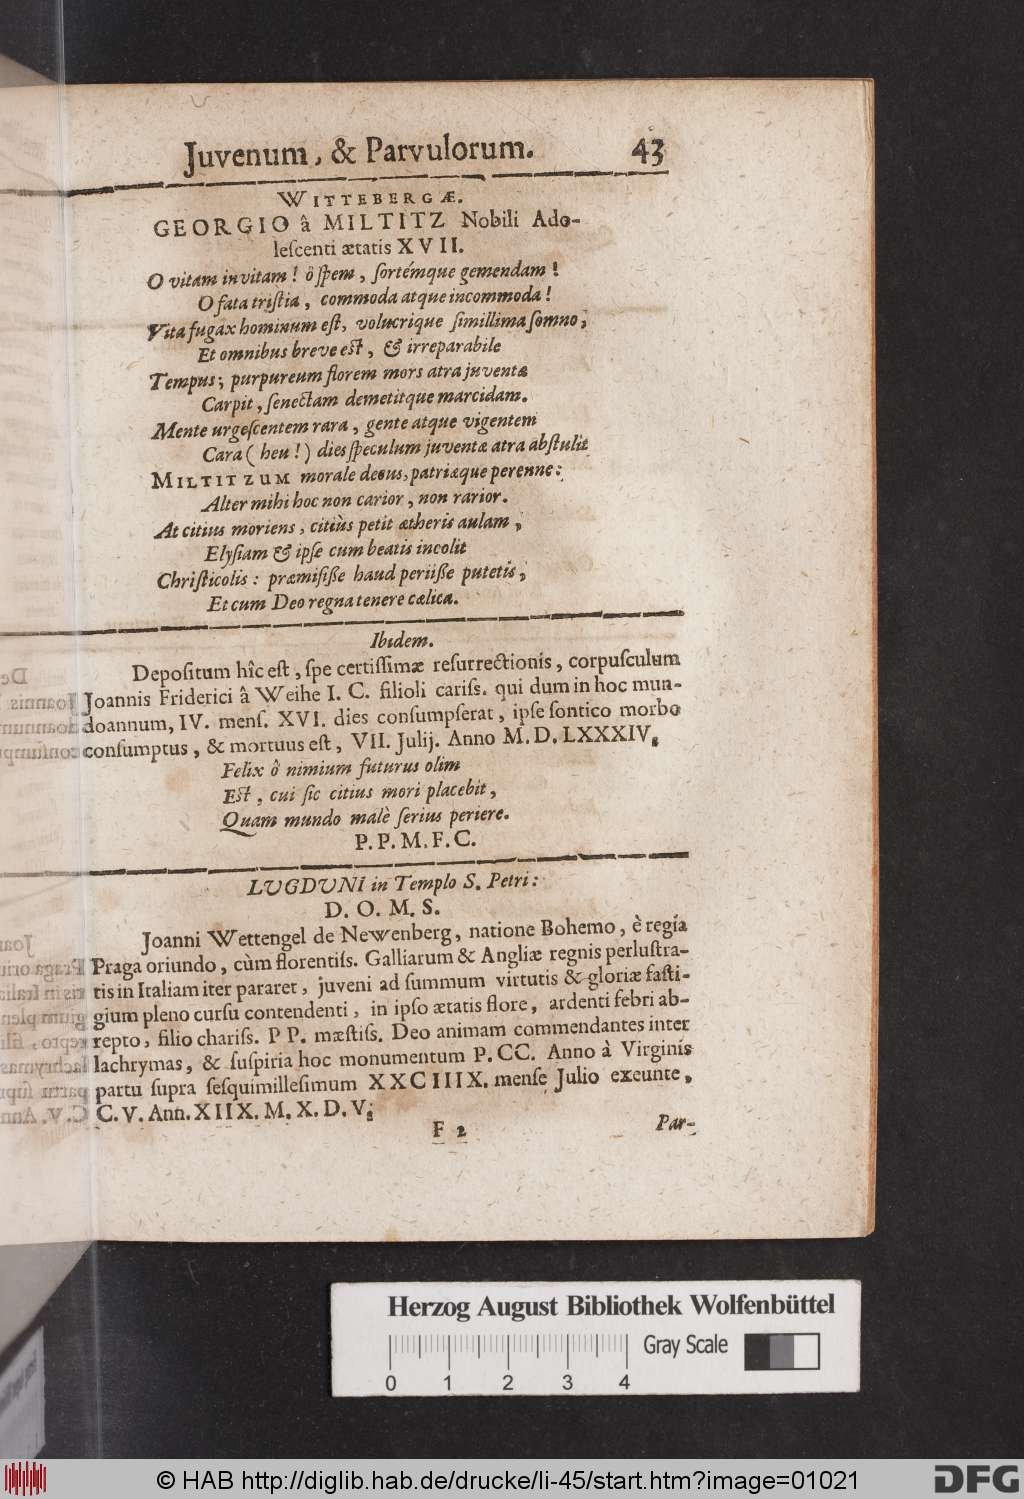 Juvenum, & Parvulorum. 43
WITTEBERGÆ.
GEORGIO â MILTITZ Nobili Ado-
leſcenti ætatis XVII.
O vitam invitam! ô ſpem, ſortémque gemendam!
O fata triſtia, commoda atque incommoda!
Vita fugax hominum eſt, volucrique ſimillima ſomno;
Et omnibus breve eſt, & irreparabile
Tempus; purpureum florem mors atra juventæ
Carpit, ſenectam demetitque marcidam.
Mente urgeſcentem rara, gente atque vigentem
Cara (heu!) dies ſpeculum juventæ atra abſtulit
MILTITZUM morale decus, patriæque perenne:
Alter mihi hoc non carior, non rarior.
At citius moriens, citiùs petit ætheris aulam,
Elyſiam & ipſe cum beatis incolit
Chriſticolis: præmiſiſſe haud periiſſe putetis,
Et cum Deo regna tenere cælica.
Ibidem.
Depoſitum hîc eſt, ſpe certiſſimæ reſurrectionis, corpuſculum
Joannis Friderici â Weihe I. C. filioli cariſſ. qui dum in hoc mun-
doannum, IV. menſ. XVI. dies conſumpſerat, ipſe ſontico morbo
conſumptus, & mortuus eſt, VII. Julij. Anno M. D. LXXXIV.
Felix ô nimium futurus olim
Eſt, cui ſic citius mori placebit,
Quam mundo malè ſerius periere.
P. P. M. F. C.
LUGDUNI in Templo S. Petri:
D. O. M. S.
Joanni Wettengel de Newenberg, natione Bohemo, è regia
Praga oriundo, cùm florentiſs. Galliarum & Angliæ regnis perluſtra-
tis in Italiam iter pararet, juveni ad ſummum virtutis & gloriæ faſti-
gium pleno curſu contendenti, in ipſo ætatis flore, ardenti febri ab-
repto, filio chariſs. P P. mæſtiſs. Deo animam commendantes inter
lachrymas, & ſuſpiria hoc monumentum P. CC. Anno à Virginis
partu ſupra ſeſquimilleſimum XXCIIIX. menſe Julio exeunte,
C. V. Ann. XIIX. M. X. D. V.
F 2 Par-
Herzog August Bibliothek Wolfenbüttel
Gray Scale
0 1 2 3 4
© HAB http://diglib.hab.de/drucke/li-45/start.htm?image=01021
DFG